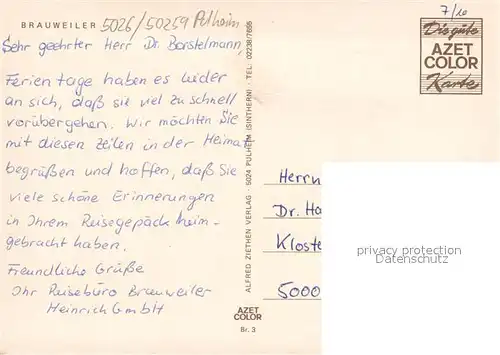 BRAUWEILER 5026/50259 Pulheim
7/10
Die gute
AZET
COLOR
Karte
Sehr geehrter Herr Dr. Borstelmann,
Ferientage haben es leider
an sich, daß sie viel zu schnell
vorübergehen. Wir möchten Sie
mit diesen Zeilen in der Heimat
begrüßen und hoffen, daß Sie
viele schöne Erinnerungen
in Ihrem Reisegepäck heim-
gebracht haben.
Freundliche Grüße
Ihr Reisebüro Brauweiler
Heinrich GmbH
ALFRED ZIETHEN VERLAG · 5024 PULHEIM (SINTHERN) TEL: 02238/7695
Herrn
Dr. Ha
Kloste
5000
privacy protection
AZET
COLOR
Br. 3